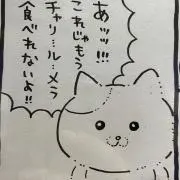 あッ!!!
これじゃもう
チャリ…ル…メラ
食べれないよ!!